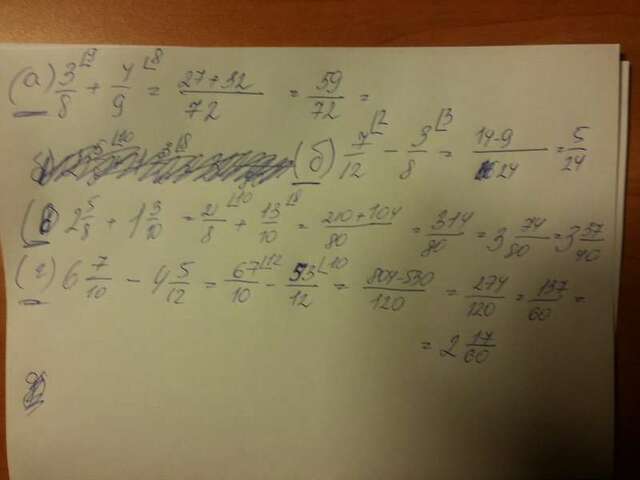 (а) 3/8 ⌊9 + 4/9 ⌊8 = 27+32/72 = 59/72 =
(б) 7/12 ⌊2 - 3/8 ⌊3 = 14-9/24 = 5/24
(в) 2 5/8 + 1 3/10 = 21/8 ⌊10 + 13/10 ⌊8 = 210+104/80 = 314/80 = 3 74/80 = 3 37/40
(г) 6 7/10 - 4 5/12 = 67/10 ⌊12 - 53/12 ⌊10 = 804-530/120 = 274/120 = 137/60 =
= 2 17/60